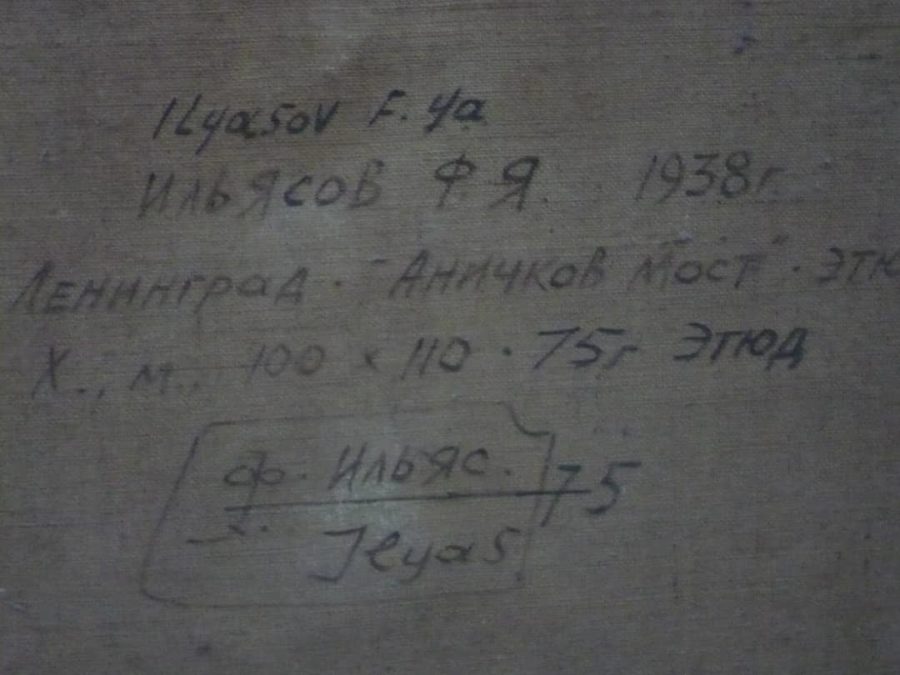 ILyasov F. Ya
Ильясов Ф Я. 1938г.
Ленинград. "Аничков мост". этю
Х., м., 100 х 110. 75г Этюд
Ф. Ильяс. 75
Ilyas